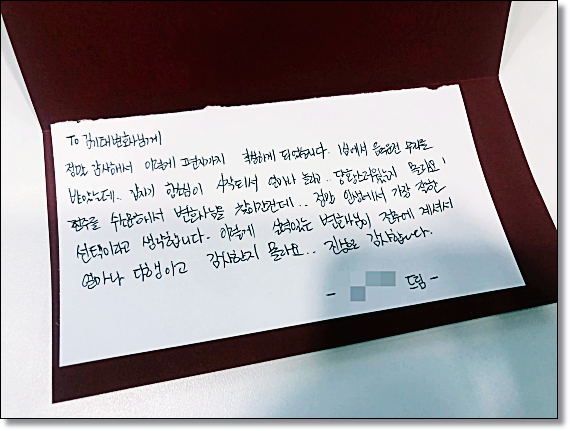 To 김기태변호사님께
정말 감사해서 이렇게 손편지까지 작성하게 되었습니다. 1심에서 유죄를
받았는데.. 갑자기 시작되서 얼마나 놀라고.. 당황스러웠는지 몰라요!
변호사님을 찾아간건데.. 정말 인생에서 가장 잘한
선택이라고 생각합니다. 이렇게 실력있는 변호사님이 전주에 계셔서
얼마나 다행이고 감사한지 몰라요.. 진심으로 감사합니다.
- 드림 -